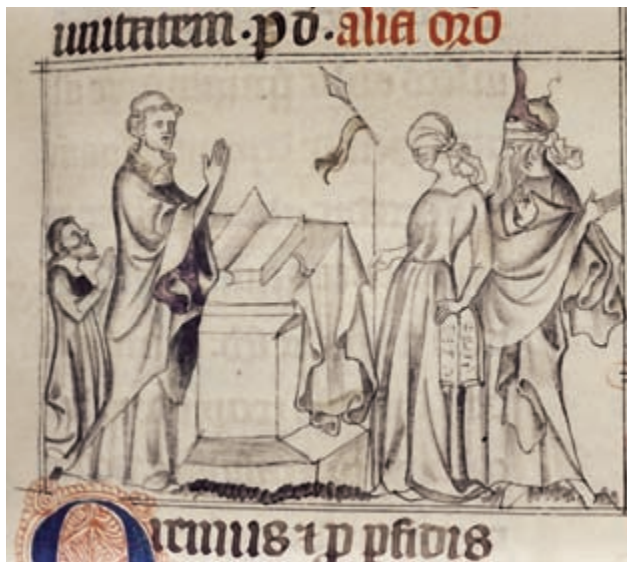 unitatem · p d · alia oro
Oremus ⁊ p pfidis